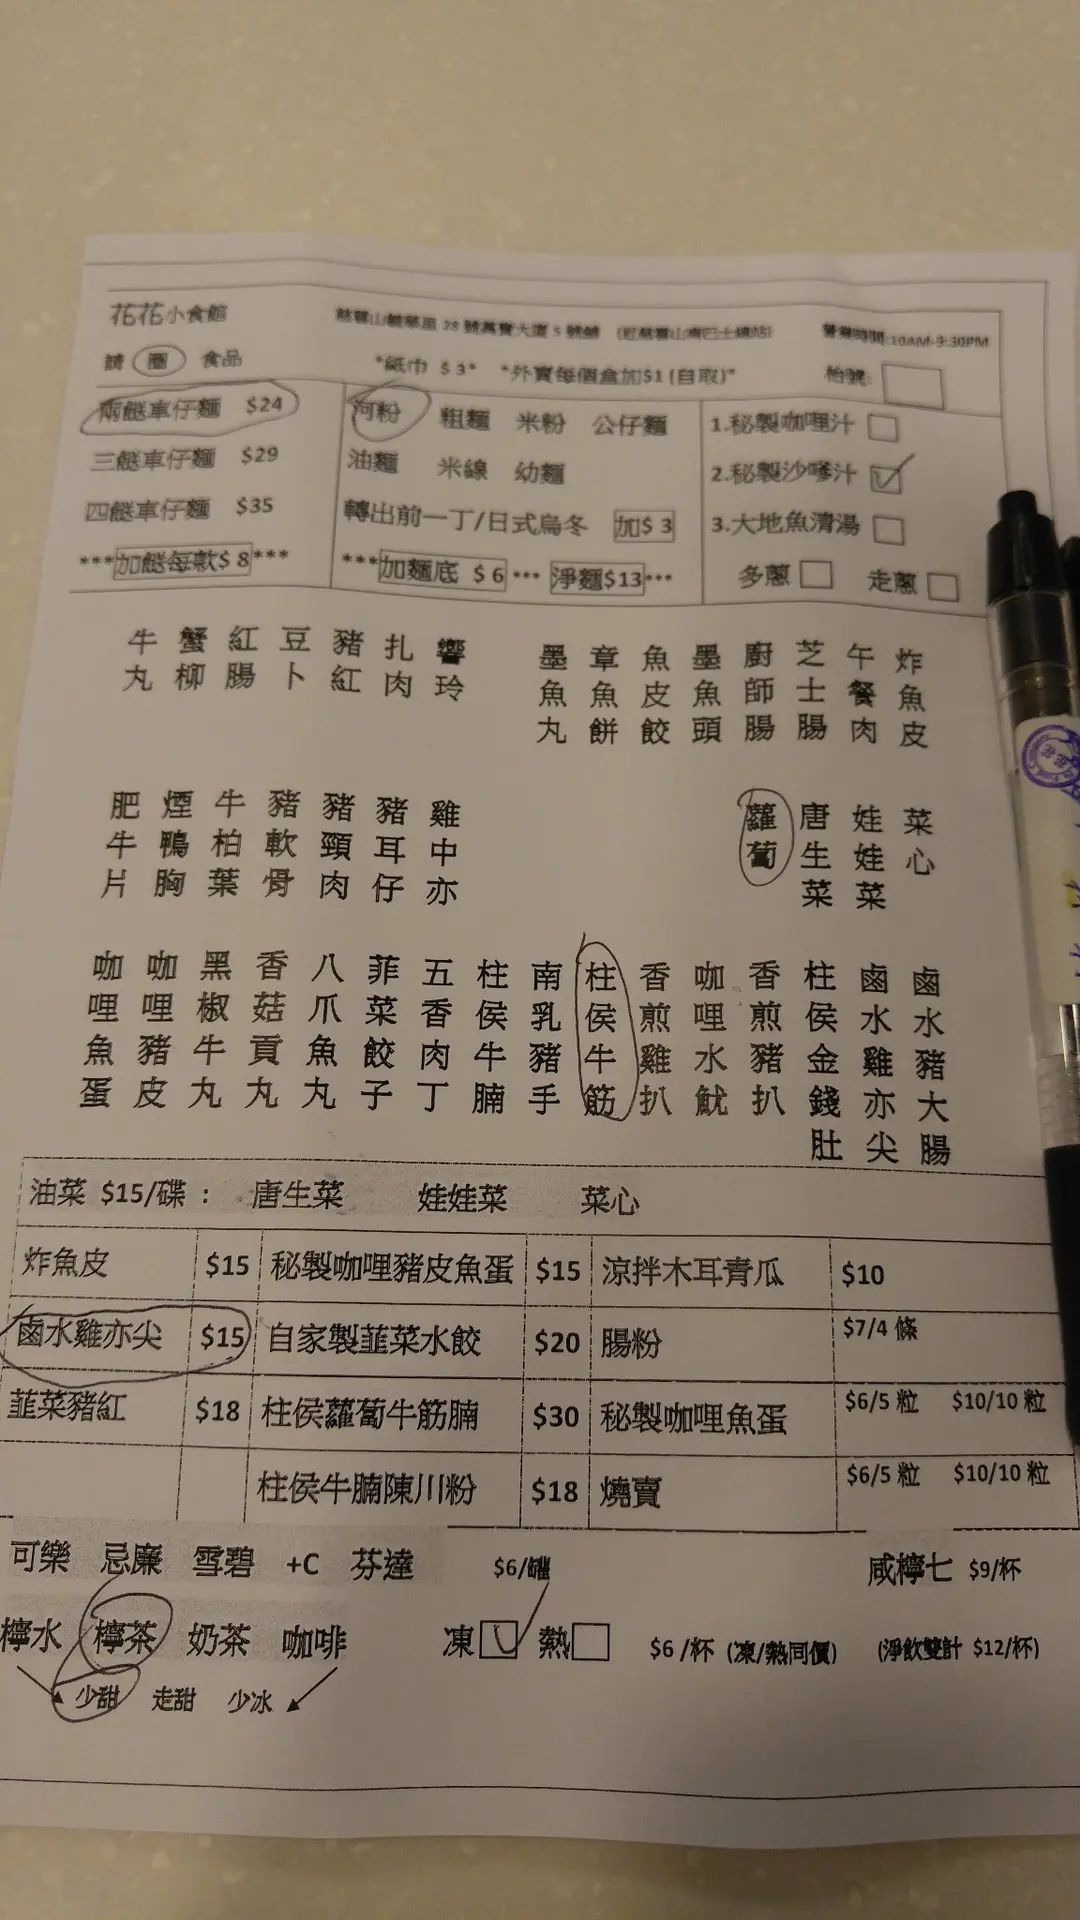 花花小食館 慈雲山毓華里 28 號萬寶大廈 5 號舖 (近慈雲山南巴士總站) 營業時間:10AM-9:30PM
請 圈 食品 *紙巾 $ 3* *外賣每個盒加$1 (自取)* 枱號:
兩餸車仔麵 $24 河粉 粗麵 米粉 公仔麵 1.秘製咖哩汁
三餸車仔麵 $29 油麵 米線 幼麵 2.秘製沙嗲汁
四餸車仔麵 $35 轉出前一丁/日式烏冬 加$ 3 3.大地魚清湯
***加餸每款$ 8*** ***加麵底 $ 6 *** 淨麵$13*** 多蔥 走蔥
牛丸 蟹柳 紅腸 豆卜 豬紅 扎肉 響玲 墨魚丸 章魚餅 魚皮餃 墨魚頭 廚師腸 芝士腸 午餐肉 炸魚皮
肥牛片 煙鴨胸 牛柏葉 豬軟骨 豬頸肉 豬耳仔 雞中亦 蘿蔔 唐生菜 娃娃菜 菜心
咖哩魚蛋 咖哩豬皮 黑椒牛丸 香菇貢丸 八爪魚丸 菲菜餃子 五香肉丁 柱侯牛腩 南乳豬手 柱侯牛筋 香煎雞扒 咖哩水魷 香煎豬扒 柱侯金錢肚 鹵水雞亦尖 鹵水豬大腸
油菜 $15/碟 : 唐生菜 娃娃菜 菜心
炸魚皮 $15 秘製咖哩豬皮魚蛋 $15 涼拌木耳青瓜 $10
鹵水雞亦尖 $15 自家製韮菜水餃 $20 腸粉 $7/4 條
韮菜豬紅 $18 柱侯蘿蔔牛筋腩 $30 秘製咖哩魚蛋 $6/5 粒 $10/10 粒
柱侯牛腩陳川粉 $18 燒賣 $6/5 粒 $10/10 粒
可樂 忌廉 雪碧 +C 芬達 $6/罐 咸檸七 $9/杯
檸水 檸茶 奶茶 咖啡 凍 熱 $6 /杯 (凍/熱同價) (淨飲雙計 $12/杯)
少甜 走甜 少冰